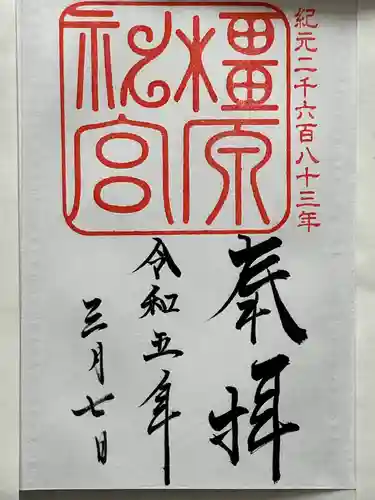 紀元二千六百八十三年
橿原神宮
奉拝
令和五年
三月七日